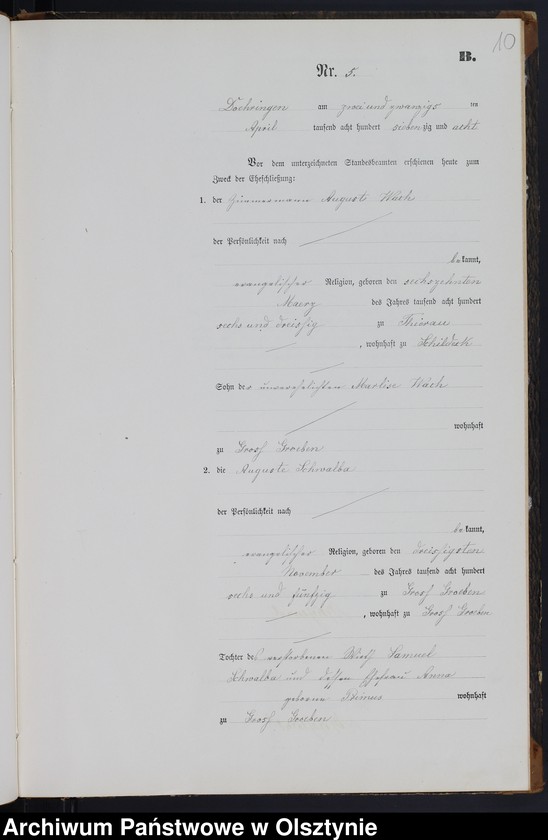 10
B.
Nr. 5.
Doehringen am zwei und zwanzigs ten
April tausend acht hundert siebenzig und acht
Vor dem unterzeichneten Standesbeamten erschienen heute zum
Zweck der Eheschließung:
1. der Zimmermann August Wach
der Persönlichkeit nach
bekannt,
evangelischer Religion, geboren den sechszehnten
Maerz des Jahres tausend acht hundert
sechs und dreissig zu Thierau
, wohnhaft zu Schildeck
Sohn der unverehelichten Wach
wohnhaft
zu Gross Groeben
2. die Auguste Schwalba
der Persönlichkeit nach
bekannt,
evangelischer Religion, geboren den dreissigsten
November des Jahres tausend acht hundert
sechs und fünfzig zu Gross Groeben
, wohnhaft zu Gross Groeben
Tochter des verstorbenen Wirth Samuel
Schwalba und dessen Ehefrau Anna
geborne wohnhaft
zu Gross Groeben
Archiwum Państwowe w Olsztynie